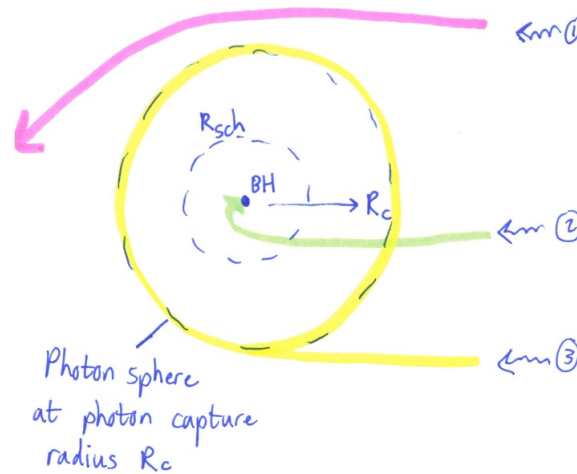 ①
R_sch
BH
R_c
②
③
Photon sphere
at photon capture
radius R_c